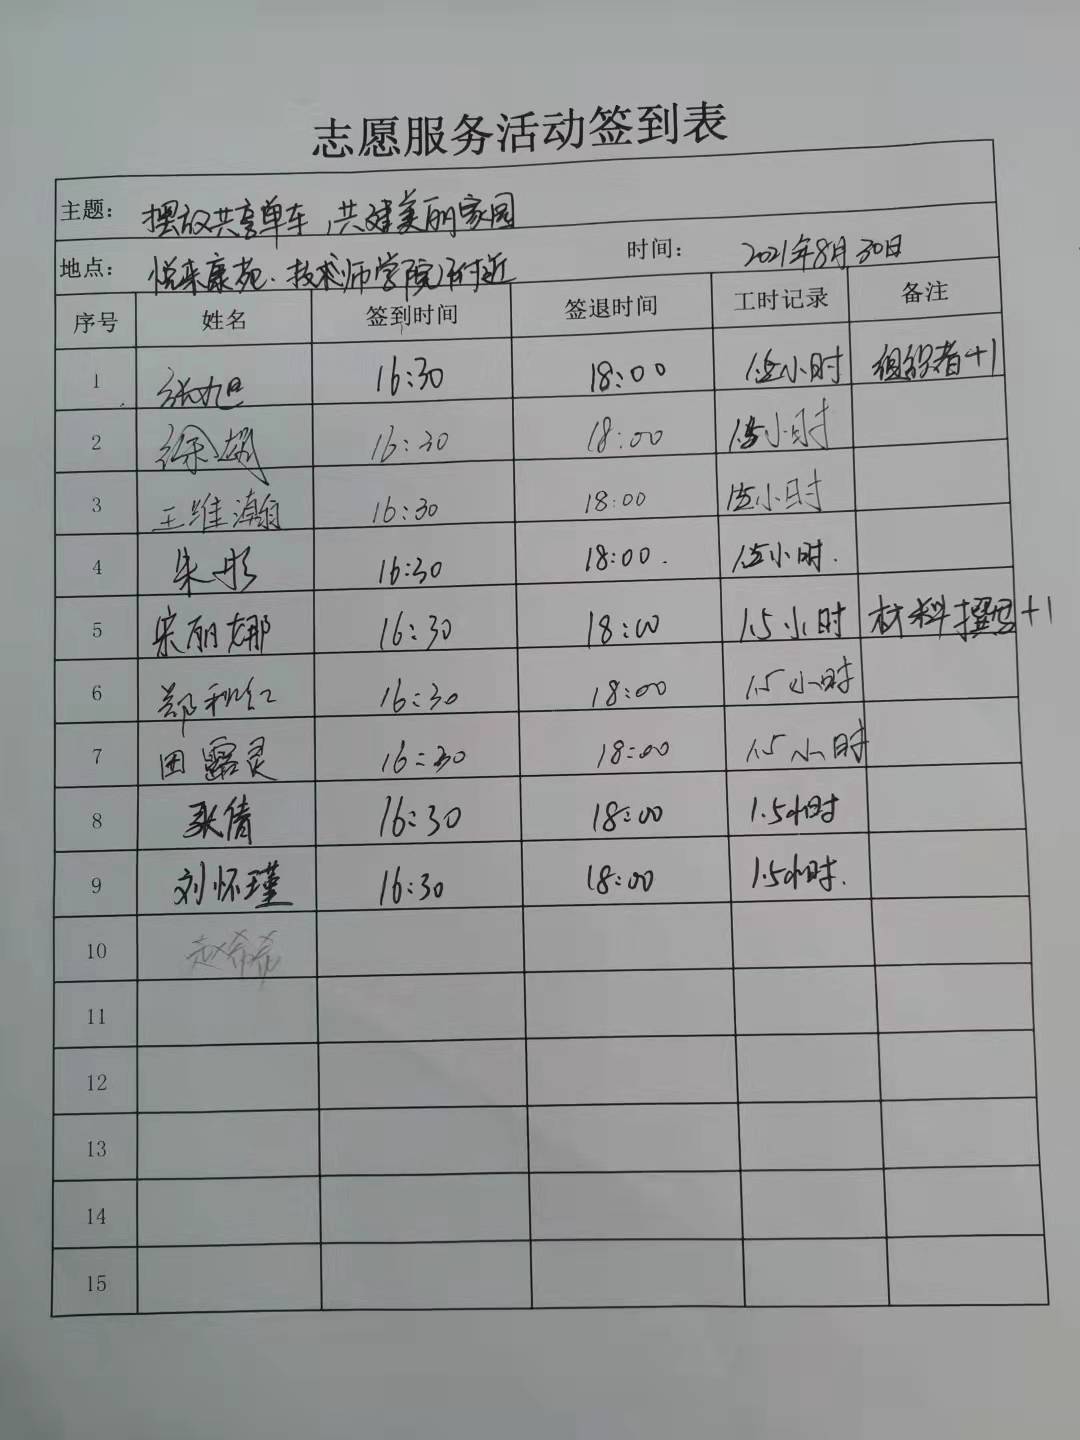 志愿服务活动签到表
主题： 摆放共享单车，共建美丽家园
地点： 悦来康苑·技术师学院附近 时间： 2021年8月30日
序号 姓名 签到时间 签退时间 工时记录 备注
1 张旭 16:30 18:00 1.5小时 组织者+1
2 徐 16:30 18:00 1.5小时
3 王维瀚 16:30 18:00 1.5小时
4 朱彤 16:30 18:00. 1.5小时.
5 宋丽娜 16:30 18:00 1.5小时 材料撰写+1
6 郑利红 16:30 18:00 1.5小时
7 田露灵 16:30 18:00 1.5小时
8 耿倩 16:30 18:00 1.5小时
9 刘怀瑾 16:30 18:00 1.5小时.
10 赵希希
11
12
13
14
15